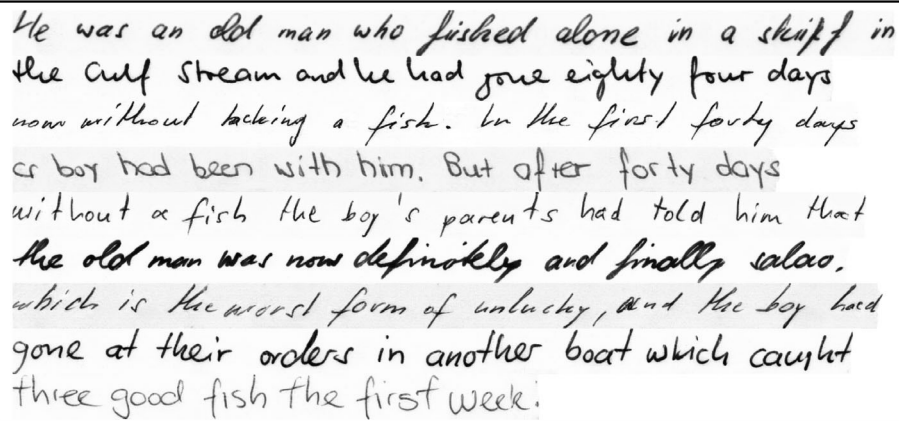 He was an old man who fished alone in a skiff in
the Gulf Stream and he had gone eighty four days
now without tacking a fish. In the first forty days
a boy had been with him. But after forty days
without a fish the boy's parents had told him that
the old man was now definitely and finally salao.
which is the worst form of unlucky, and the boy had
gone at their orders in another boat which caught
three good fish the first week.